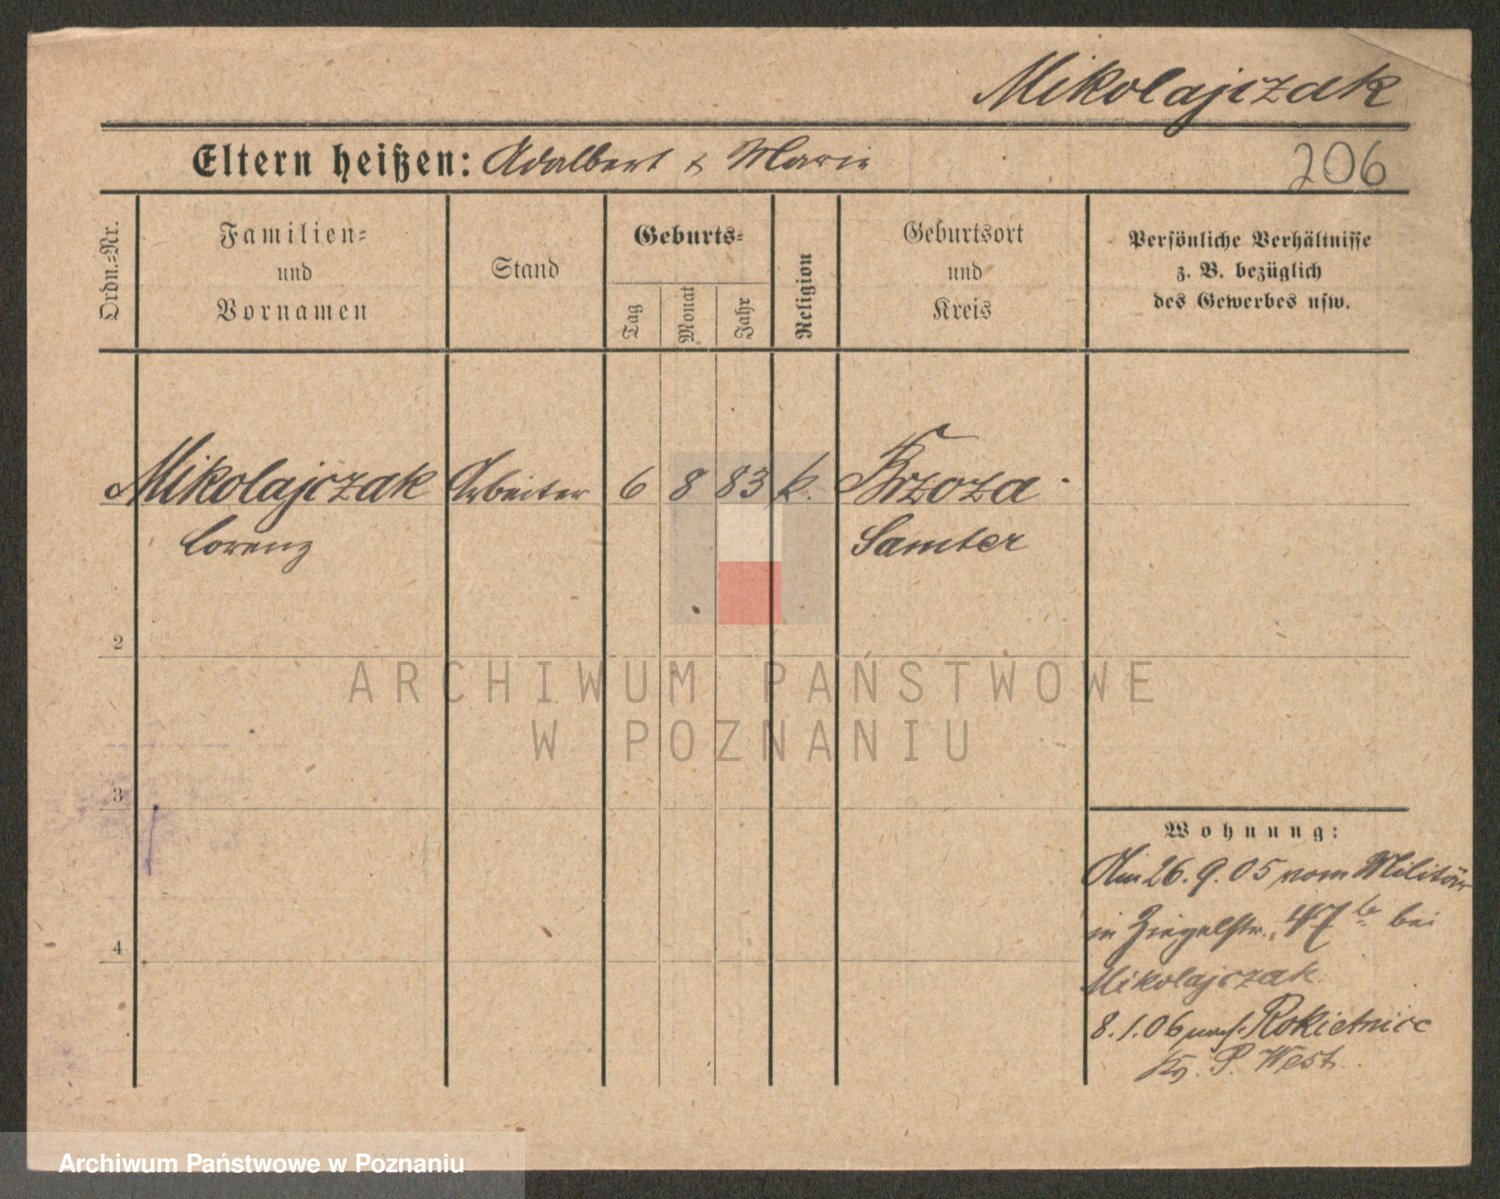 Mikolajczak
Eltern heißen: Adalbert & Marie
206
Ordn.-Nr.
Familien-
und
Vornamen
Stand
Geburts-
Tag
Monat
Jahr
Religion
Geburtsort
und
Kreis
Persönliche Verhältnisse
z. B. bezüglich
des Gewerbes usw.
Mikolajczak Arbeiter 6 8 83 k. Brzoza
Lorenz Samter
2
3
4
Wohnung:
Am 26.9.05 vom Militär
in Ziegelstr. 47 bei
Mikolajczak
8.1.06 nach Rokietnice
P. West.
ARCHIWUM PAŃSTWOWE
W POZNANIU
Archiwum Państwowe w Poznaniu